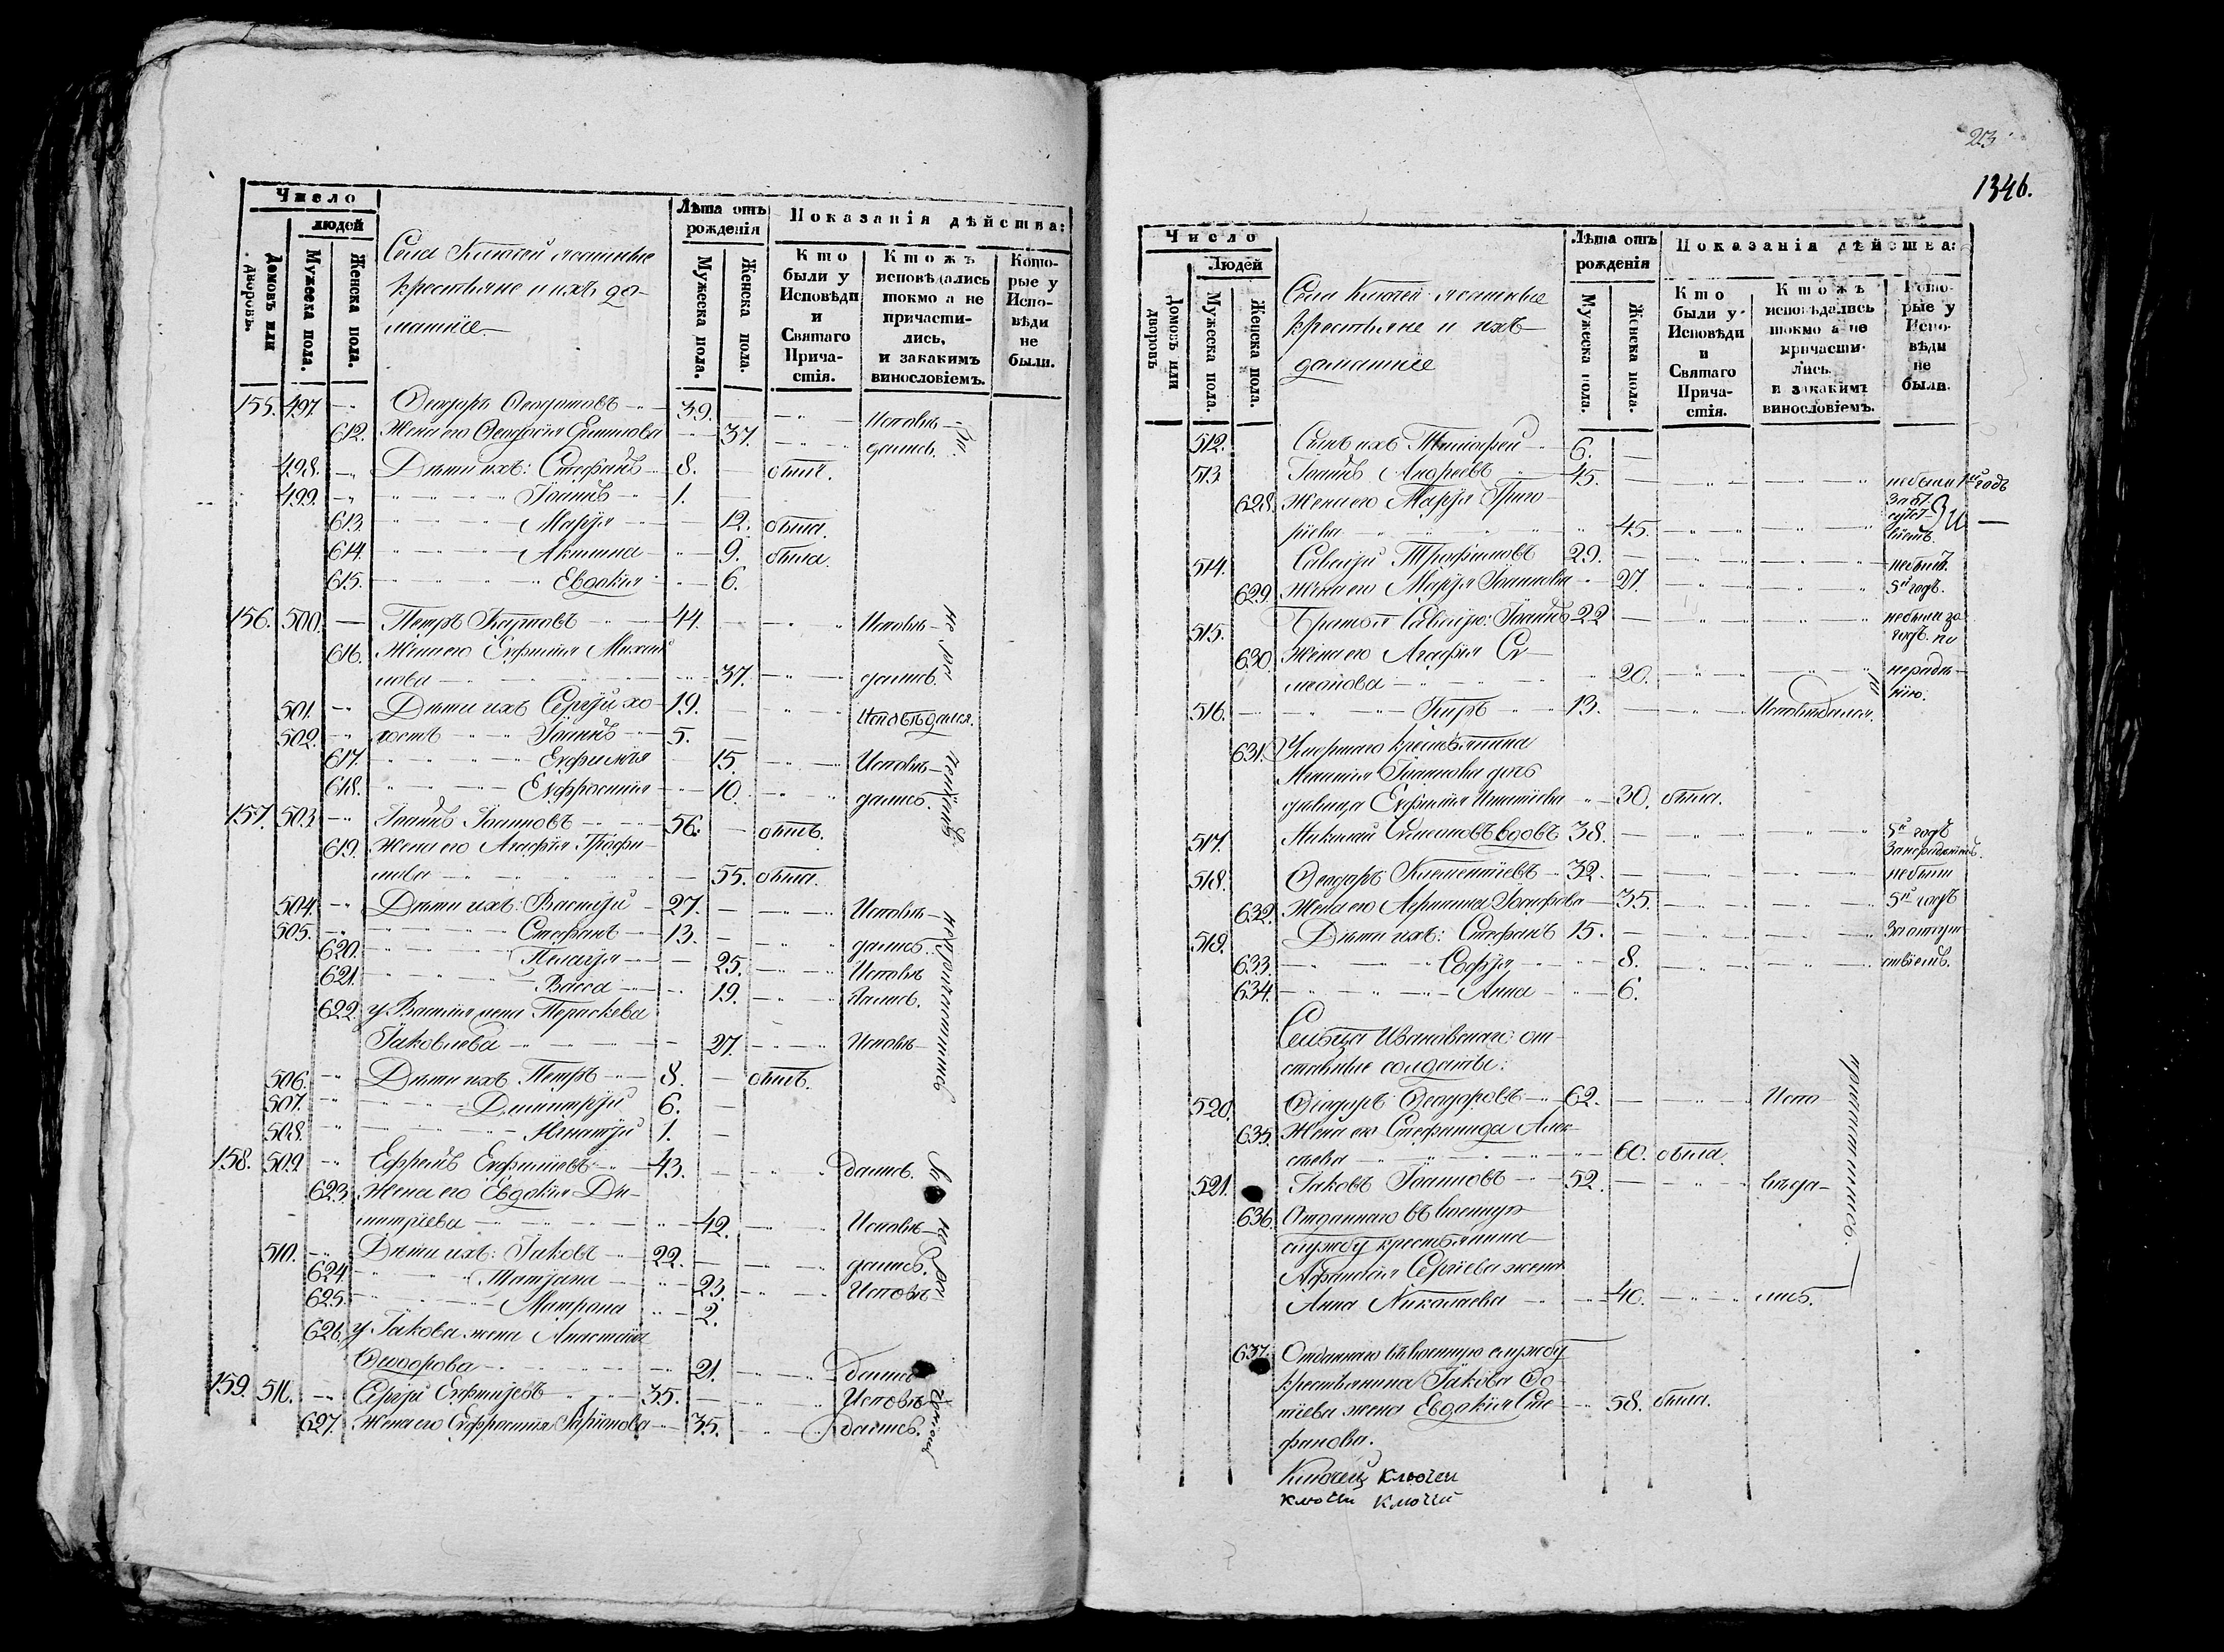 Число
людей
Домовъ или дворовъ.
Мужеска пола.
Женска пола.
Села Ключей ясашные
крестьяне и ихъ до-
машніе
Лѣта отъ рожденія
Мужеска пола.
Женска пола.
Показанія дѣйства:
Кто были у Исповѣди и Святаго Прича-стія.
Ктожъ исповѣдались токмо а не причасти-лись, и закакимъ винословіемъ.
Кото-рые у Испо-вѣди не были.
155. 497. Ѳеодоръ 39. Исповѣ-
612. Жена его Ѳеодосія 37. дались.
498. Дѣти ихъ: Стефанъ 8. былъ.
499. Іоаннъ 1.
613. Марія 12. была.
614. Акилина 9. была.
615. Евдокія 6.
156. 500. Петръ Карповъ 44. Исповѣ-
616. Жена его Евфимія Михай
лова 37. дались.
501. Дѣти ихъ Сергій хо- 19. Исповѣдался.
502. лостъ Іоаннъ 5.
617. Евфимія 15. Исповѣ-
618. Евфросинія 10. дались.
157. 503. Іоаннъ Іоанновъ 56. былъ.
619. Жена его Агафія Трофи-
мова 55. была.
504. Дѣти ихъ: Василій 27. Исповѣ-
505. Стефанъ 13. дались.
620. Пелагія 25. Исповѣ
621. Васса 19. дались.
622. у Василія жена Параскева
Іаковлева 27. Исповѣ-
506. Дѣти ихъ Петръ 8. былъ.
507. Димитрій 6.
508. Игнатій 1.
158. 509. Ефремъ Евфиміевъ 43. дались.
623. Жена его Евдокія Ди-
митріева 42. Исповѣ-
510. Дѣти ихъ: Іаковъ 22. дались.
624. Татіана 23. Исповѣ-
625. Матрона 2.
626. у Іакова жена Анастасія
Ѳеодорова 21. дались
159. 511. Сергій Евфиміевъ 35. Исповѣ-
627. Жена его Евфросинія Ларіонова 35. дались.
непричастились
203
1346.
Число
Людей
Домовъ или дворовъ
Мужеска пола.
Женска пола.
Села Ключей ясашные
крестьяне и ихъ
домашніе
Лѣта отъ рожденія
Мужеска пола.
Женска пола.
Показанія дѣйства:
Кто были у Исповѣди и Святаго Прича-стія.
Ктожъ исповѣдались токмо а не причасти-лись. и закакимъ винословіемъ.
Кото-рые у Испо-вѣди не были.
512. Сынъ ихъ Тимофей 6.
513. Іоаннъ Андреевъ 45. небыли 1й годъ
628. Жена его Марія Григо
ріева 45.
514. Савватій Трофимовъ 29. небыли
629. Жена его Марія Іоаннова 27. 5й годъ.
515. Братья Савватію: Іоаннъ 22 небыли
630. Жена его Агафія Си-
меонова 20. неради-
нію.
516. Киръ 13. Исповѣдался.
631. Умершаго крестьянина
Игнатія Іоаннова дочь
дѣвица Евфимія Игнатіева 30. была.
517. Николай Симеоновъ вдовъ 38. 5й годъ
518. Ѳеодоръ Климентіевъ 32. небыли
632. Жена его 35. 5й годъ
519. Дѣти ихъ: Стефанъ 15. За отсут
633. Софія 8. ствіемъ.
634. Анна 6.
Сельца Ивановскаго: от-
ставные солдаты:
520. Ѳеодоръ Ѳеодоровъ 62. Испо
635. Жена его Стефанида Алек-
сіева 60. была.
521. Іаковъ Іоанновъ 52. вѣда-
636. Отданнаго въ военную
службу крестьянина
Афанасія Сергіева жена
Анна Николаева 40. лись.
637. Отданнаго въ военную службу
крестьянина Іакова Фо-
тіева жена Евдокія Сте- 58. была.
фанова.
Ключей Ключей
Ключи Ключей